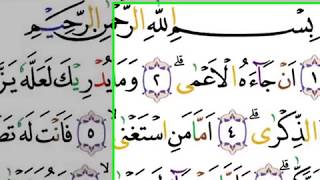 بِسْمِ اللهِ الرَّحْمٰنِ الرَّحِيْمِ
١ اَنْ جَآءَهُ الْاَعْمٰى ۙ ٢ وَمَا يُدْرِيْكَ لَعَلَّهٗ يَزَّ
الذِّكْرٰى ۙ ٤ اَمَّا مَنِ اسْتَغْنٰى ۙ ٥ فَاَنْتَ لَهٗ تَصَ